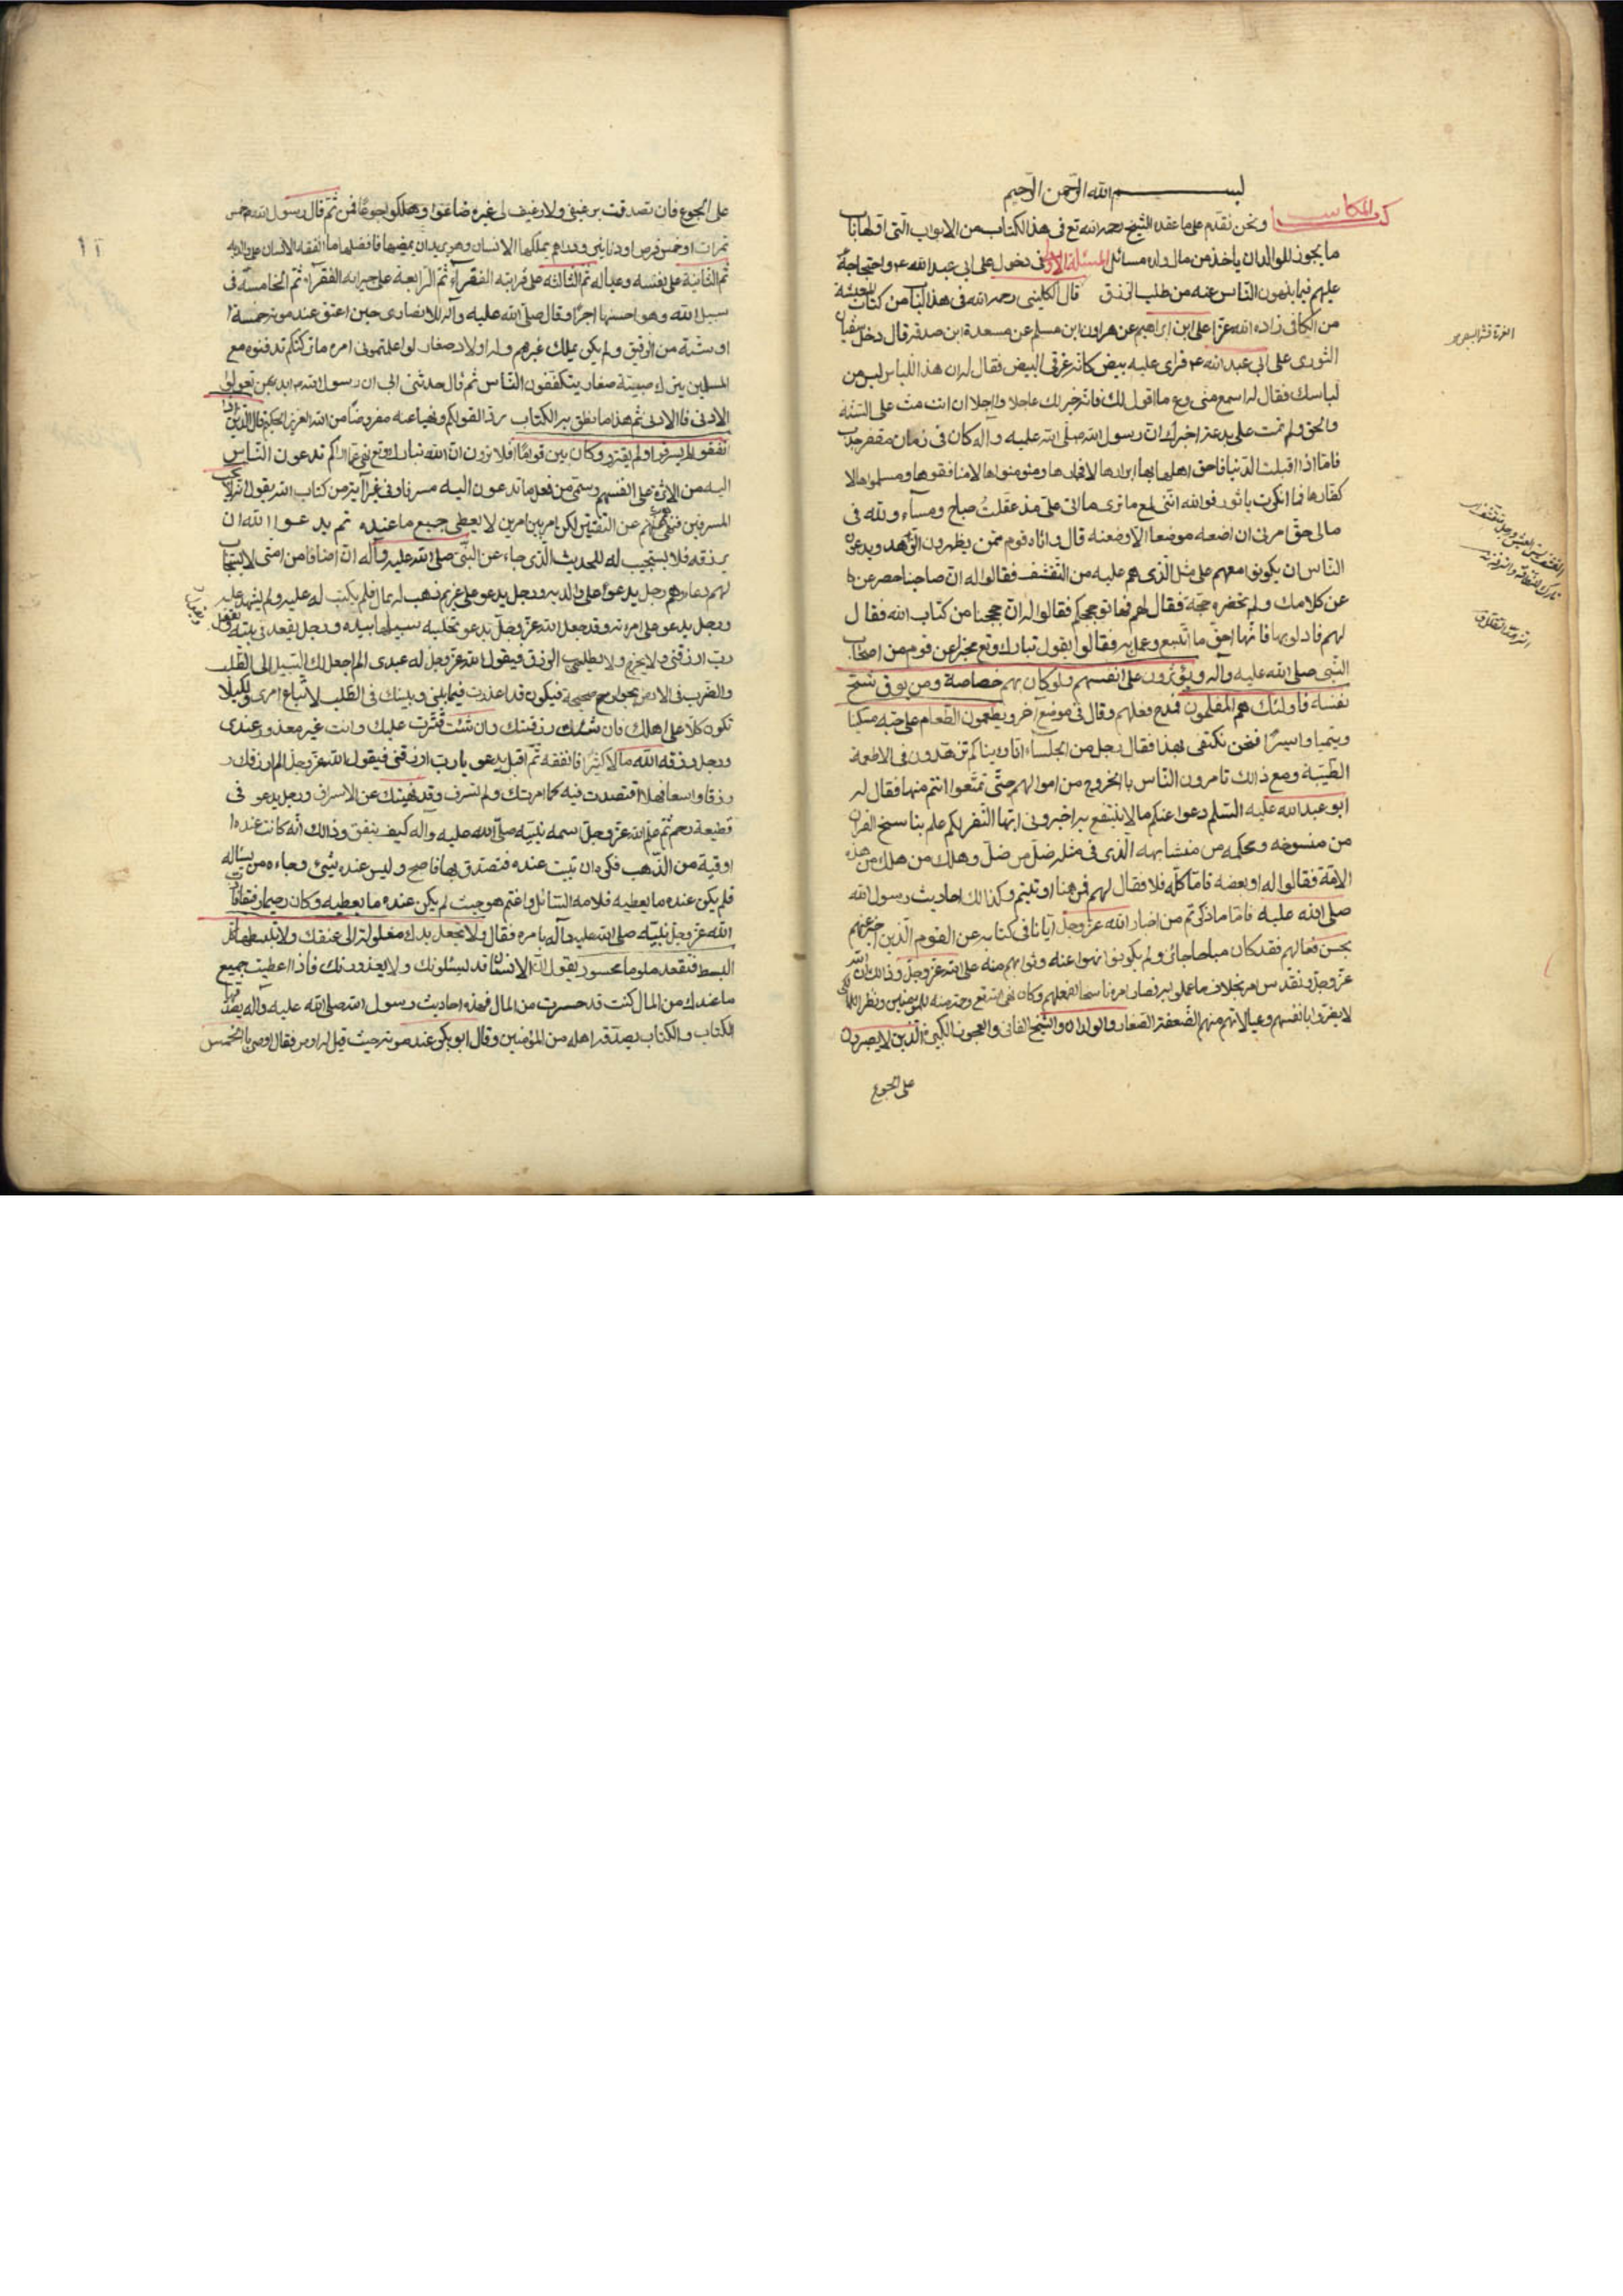 بسم الله الرحمن الرحيم
كتاب المكاسب ونحن نقدم على ما عقده الشيخ رحمه الله تع في هذا الكتاب من الابواب التي اولها باب
ما يجوز للوالد ان ياخذ من مال ولده مسائل المسئلة الاولى في دخول على ابي عبد الله عم واحتجاجه
عليهم فيما ينهون الناس عنه من طلب الرزق قال الكليني رحمه الله في هذا الباب من كتاب المعيشة
من الكافي زاده الله عزا على ابن ابراهيم عن هرون ابن مسلم عن مسعدة ابن صدقة قال دخل سفيان
الثوري على ابي عبد الله عم فراى عليه ثياب بيض كانه غرقئ البيض فقال له ان هذا اللباس ليس من
لباسك فقال له اسمع مني وع ما اقول لك فانه خير لك عاجلا واجلا ان انت مت على السنة
والحق ولم تمت على بدعة اخبرك ان رسول الله صلى الله عليه واله كان في زمان مقفر جدب
فاما اذا اقبلت الدنيا فاحق اهلها بها ابرارها لا فجارها ومؤمنوها لا منافقوها ومسلموها لا
كفارها فما انكرت يا ثوري فوالله انني لمع ما ترى ما اتى علي مذ عقلت صباح ومسآء ولله في
مالي حق امرني ان اضعه موضعا الا وضعته قال واتاه قوم ممن يظهرون الزهد ويدعون
الناس ان يكونوا معهم على مثل الذي هم عليه من التقشف فقالوا له ان صاحبنا حصر عن
عن كلامك ولم تحضره حجة فقال لهم فهاتوا حججكم فقالوا له ان حججنا من كتاب الله فقال
لهم فادلوا بها فانها احق ما اتبع وعمل به فقالوا يقول تبارك وتع مخبرا عن قوم من اصحاب
النبي صلى الله عليه واله ويؤثرون على انفسهم ولو كان بهم خصاصة ومن يوق شح
نفسه فاولئك هم المفلحون فمدح فعلهم وقال في موضع آخر ويطعمون الطعام على حبه مسكينا
ويتيما واسيرا فنحن نكتفى بهذا فقال رجل من الجلساء انا رايناكم تزهدون في الاطعمة
الطيبة ومع ذالك تامرون الناس بالخروج من اموالهم حتى تمتعوا انتم منها فقال له
ابو عبد الله عليه السلم دعوا عنكم ما لا ينتفع به اخبروني ايها النفر الكم علم بناسخ القران
من منسوخه ومحكمه من متشابهه الذي في مثله ضل من ضل وهلك من هلك من هذه
الامة فقالوا له او بعضه فاما كله فلا فقال لهم فمن هنا اوتيتم وكذالك احاديث رسول الله
صلى الله عليه فاما ما ذكرتم من اخبار الله عز وجل ايانا في كتابه عن القوم الذين اخبر عنهم
بحسن فعالهم فقد كان مباحا جائزا ولم يكونوا نهوا عنه وثوابهم منه على الله عز وجل وذالك ان الله
عز وجل وتقدس امر بخلاف ما عملوا به فصار امره ناسخا لفعلهم وكان نهى الله تع رحمة منه للمؤمنين ونظرا لكى
لا يضروا بانفسهم وعيالاتهم منهم الضعفة الصغار والولدان والشيخ الفاني والعجوز الكبيرة الذين لا يصبرون
على الجوع
على الجوع فان تصدقت برغيفي ولا رغيف لي غيره ضاعوا وهلكوا جوعا فمن ثم قال رسول الله صم خمس
تمرات او خمس قرص او دنانير او دراهم يملكها الانسان وهو يريد ان يمضيها فافضلها ما انفقه الانسان على والديه
ثم الثانية على نفسه وعياله ثم الثالثة على قرابته الفقرآء ثم الرابعة على جيرانه الفقرآء ثم الخامسة في
سبيل الله وهو احسنها اجرا وقال صلى الله عليه وآله للانصاري حين اعتق عند موته خمسة
او ستة من الرقيق ولم يكن يملك غيرهم وله اولاد صغار لو اعلمتموني امره ما تركتكم تدفنوه مع
المسلمين يترك صبية صغار يتكففون الناس ثم قال حدثني ابي ان رسول الله صم ابدء بمن تعول
الادنى فالادنى ثم هذا ما نطق به الكتاب ردا لقولكم ونهيا عنه مفروضا من الله العزيز الحكيم قال الذين اذا
انفقوا لم يسرفوا ولم يقتروا وكان بين قواما افلا ترون ان الله تبارك وتع قال غير ما اراكم تدعون الناس
اليه من الاثرة على انفسهم وسمى من فعل ما تدعون اليه مسرفا وفي غير آية من كتاب الله يقول انه لا يحب
المسرفين فنهاهم عن التقتير لكن امر بين امرين لا يعطي جميع ما عنده ثم يدعوا الله ان
يرزقه فلا يستجيب له للحديث الذي جاء عن النبي صلى الله عليه وآله ان اصنافا من امتي لا يستجاب
لهم دعاءهم رجل يدعوا على والديه ورجل يدعو على غريم ذهب له بمال فلم يكتب له عليه ولم يشهد عليه
ورجل يدعو على امرءته وقد جعل الله عز وجل بيده تخلية سبيلها بيده ورجل يقعد في بيته ويقول
رب ارزقني ولا يخرج ولا يطلب الرزق فيقول الله عز وجل له عبدي الم اجعل لك السبيل الى الطلب
والضرب في الارض بجوارح صحيحة فيكون قد اعذرت فيما بيني وبينك في الطلب لاتباع امري ولكيلا
تكون كلا على اهلك فان شئت رزقتك وان شئت قترت عليك وانت غير معذور عندي
ورجل رزقه الله مالا كثيرا فانفقه ثم اقبل يدعو يا رب ارزقني فيقول الله عز وجل الم ارزقك
رزقا واسعا فهلا اقتصدت فيه كما امرتك ولم تسرف وقد نهيتك عن الاسراف ورجل يدعو في
قطيعة رحم ثم علم الله عز وجل اسمه نبيه صلى الله عليه واله كيف ينفق وذالك انه كانت عنده
اوقية من الذهب فكره ان تبيت عنده فتصدق بها فاصبح وليس عنده شيئ وجاءه من يساله
فلم يكن عنده ما يعطيه فلامه السائل واغتم هو حيث لم يكن عنده ما يعطيه وكان رحيما رفيقا فادب
الله عز وجل نبيه صلى الله عليه وآله بامره فقال ولا تجعل يدك مغلولة الى عنقك ولا تبسطها كل
البسط فتقعد ملوما محسورا يقول ان الانسان قد يسئلونك ولا يعذرونك فاذا اعطيت جميع
ما عندك من المال كنت قد حسرت من المال فهذه احاديث رسول الله صلى الله عليه واله يصدقها
الكتاب والكتاب يصدقه اهله من المؤمنين وقال ابو بكر عند موته حيث قيل له اوص فقال اوصي بالخمس